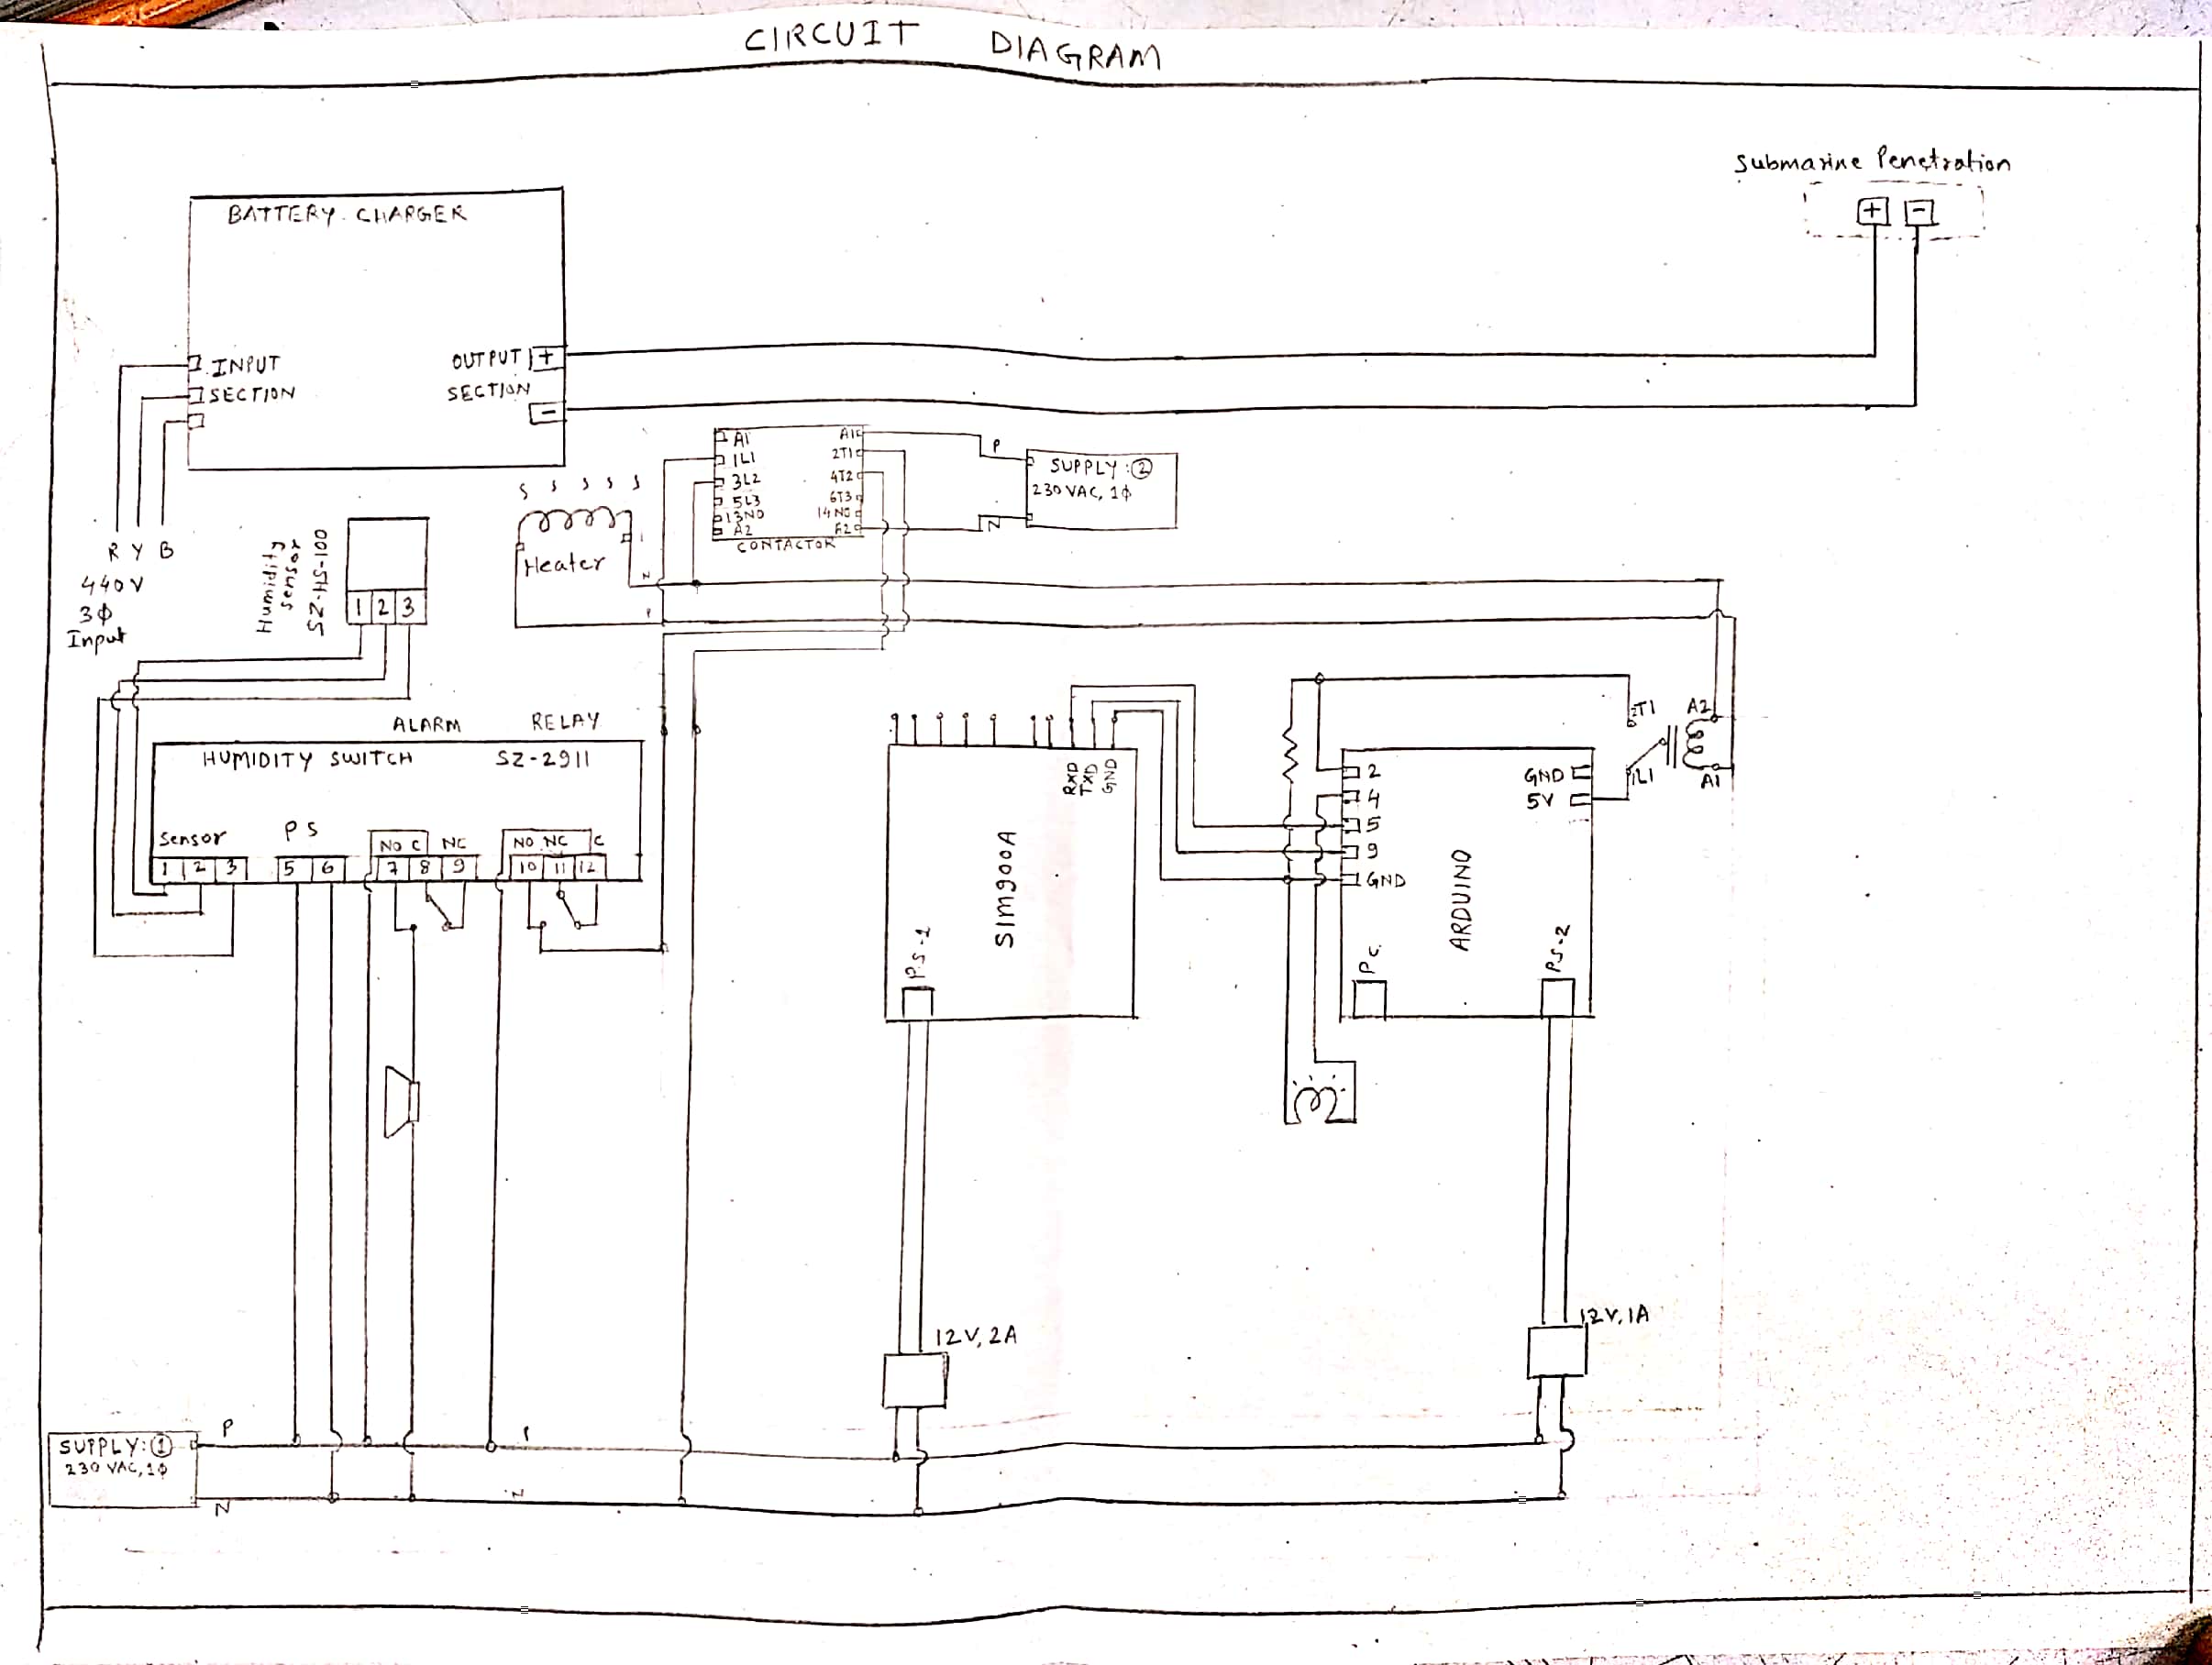 CIRCUIT DIAGRAM
Submarine Penetration
+ -
BATTERY CHARGER
INPUT
SECTION
OUTPUT +
SECTION
-
R Y B
440V
3Φ
Input
Humidity
sensor
SZ-HS-100
1 2 3
Heater
N
P
A1 A1
1L1 2T1
3L2 4T2
5L3 6T3
13NO 14NO
A2 A2
CONTACTOR
P
N
SUPPLY:②
230 VAC, 1Φ
ALARM RELAY
HUMIDITY SWITCH SZ-2911
Sensor PS NO C NC NO NC C
1 2 3 5 6 7 8 9 10 11 12
RXD
TXD
GND
SIM900A
PS-1
2
4
5
9
GND
GND
5V
ARDUINO
PC
PS-2
2T1
1L1
A2
A1
12V, 2A
12V, 1A
SUPPLY:①
230 VAC, 1Φ
P
N
P
N